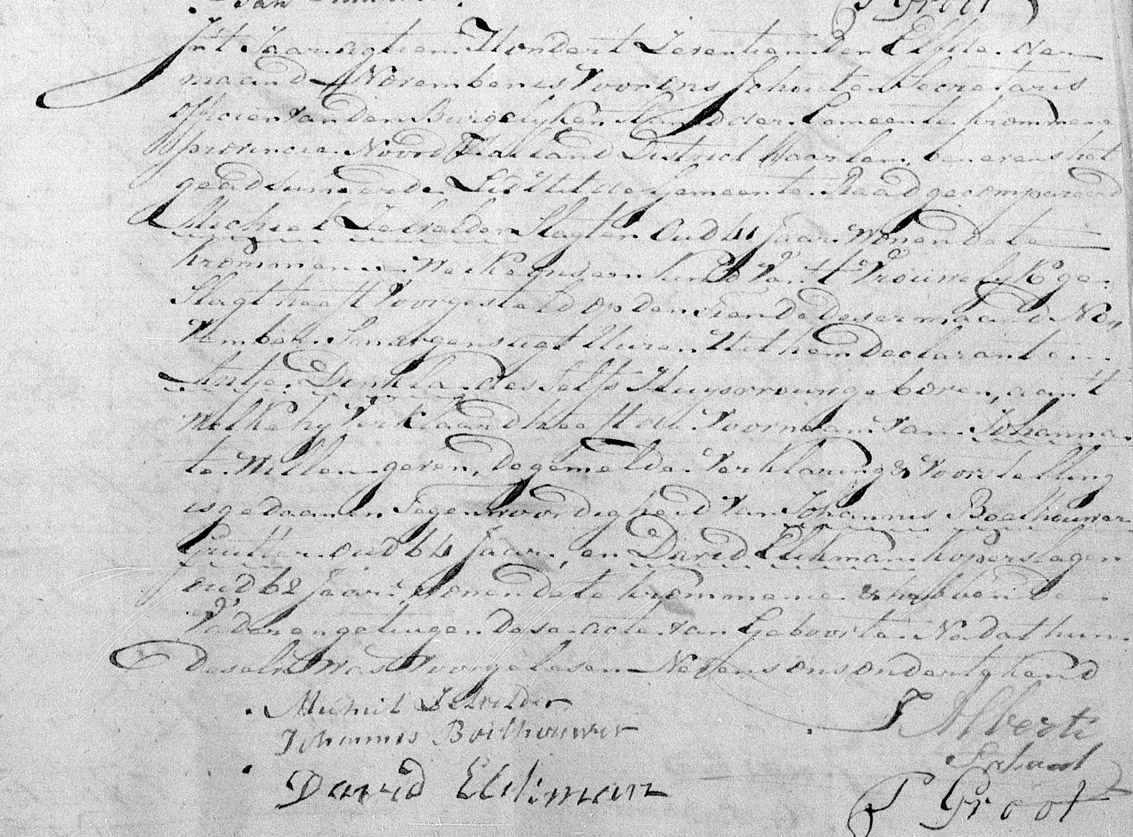 P Groot
In't Jaar agtien Hondert Zeventien den Elfde der
maand November is Voor ons Schout en Secretaris
officier van den Burgelyken Stand der Gemeente krommenie
provincie Noord Holland District Haarlem, benevens het
geadsumeerde Lid uit de Gemeente Raad gecompareerd
Michiel Zelvelder Slagter Oud 41 Jaar Wonende te
krommenie Welke ons een kind Van 't Vrouwelyk ge-
slagt heeft Voorgesteld op den tiende deser maand No-
vember Smorgens Uuren Uit hem Declarant en
Antje Denkla desselfs Huysvrouw geboren, aan 't
welke hy Verklaard heeft de Voornaam Van Johanna
te Willen geven, De gemelde Verklaring & Voorstelling
is gedaan in Tegenwoordigheid Van Johannis Boelhouwer
oud 64 Jaar, en David Elekman koperslager
oud 62 Jaar Wonende te krommenie & hebben de
Vader en getuigen dese acte van Geboorte Na dat hun
deselve was Voorgelesen Nevens ons ondertekend
Michiel Zelvelder
Johannis Boelhouwer
J Alberti
Schout
David Elekman
P Groot